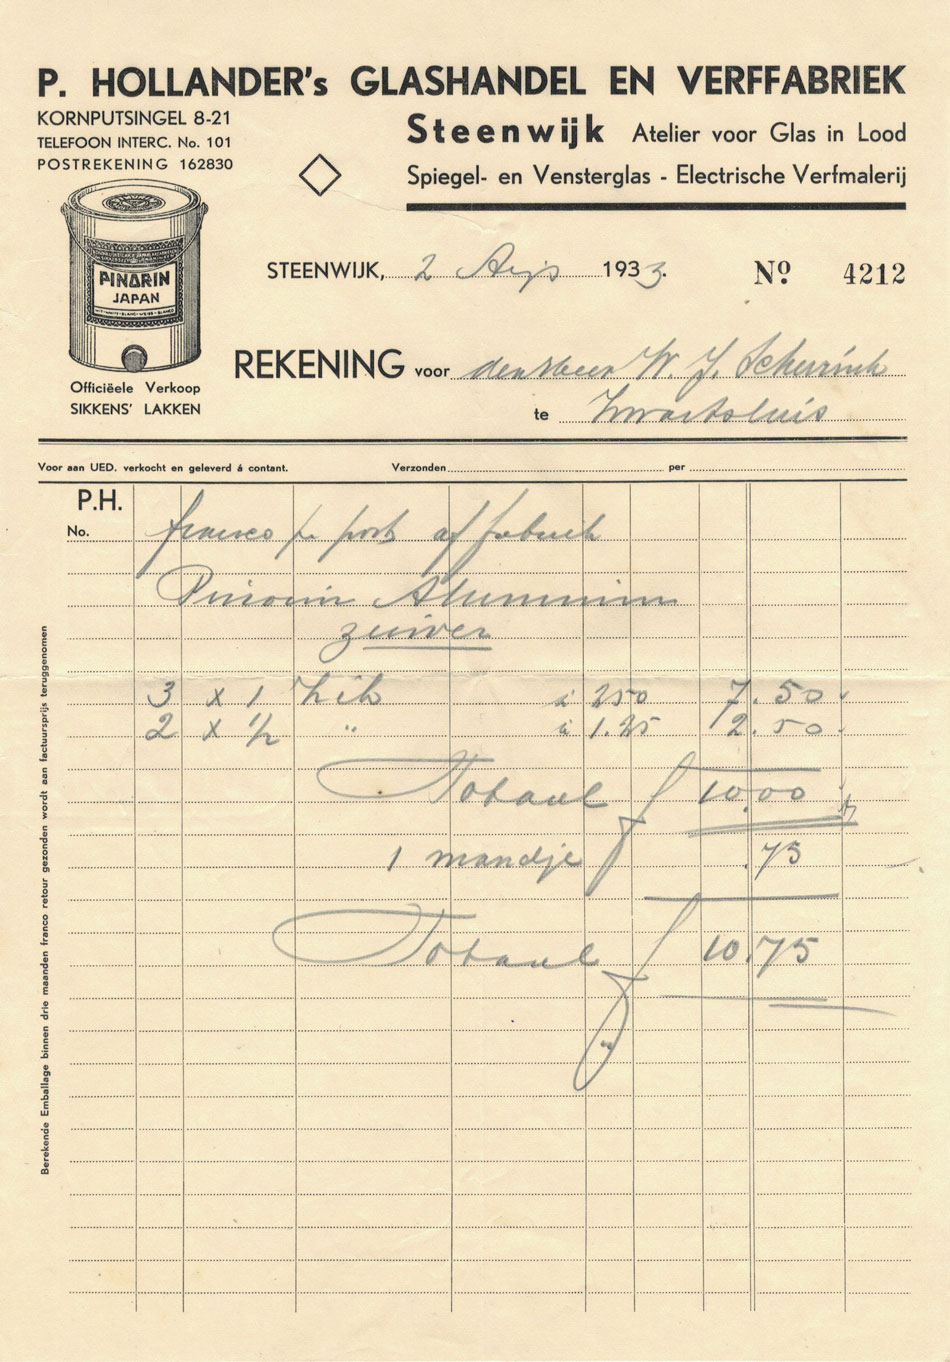 P. HOLLANDER's GLASHANDEL EN VERFFABRIEK
KORNPUTSINGEL 8-21
TELEFOON INTERC. No. 101
POSTREKENING 162830
Steenwijk Atelier voor Glas in Lood
Spiegel- en Vensterglas - Electrische Verfmalerij
PINARIN
JAPAN
Officiëele Verkoop
SIKKENS' LAKKEN
STEENWIJK, 2 Aug 1933. Nº 4212
REKENING voor den Heer W. J. Schurink
te Zwartsluis
Voor aan UED. verkocht en geleverd á contant. Verzonden per
P.H.
No.
franco per post af fabriek
Pinarin Aluminium
zuiver
3 x 1 à 250 7.50
2 x 1/2 " à 1.25 2.50
Totaal f 10.00
1 mandje .75
Totaal f 10.75
Berekende Emballage binnen drie maanden franco retour gezonden wordt aan factuursprijs teruggenomen